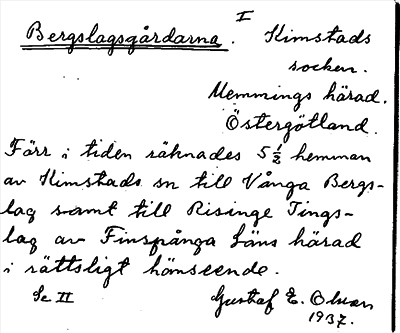 I
Bergslagsgårdarna. Kimstads
socken.
Memmings härad.
Östergötland.
Förr i tiden räknades 5 1/2 hemman
av Kimstads sn till Vånga Bergs-
lag samt till Risinge Tings-
lag av Finspånga Läns härad
i rättsligt hänseende.
Se II Gustaf E. Olson
1937.